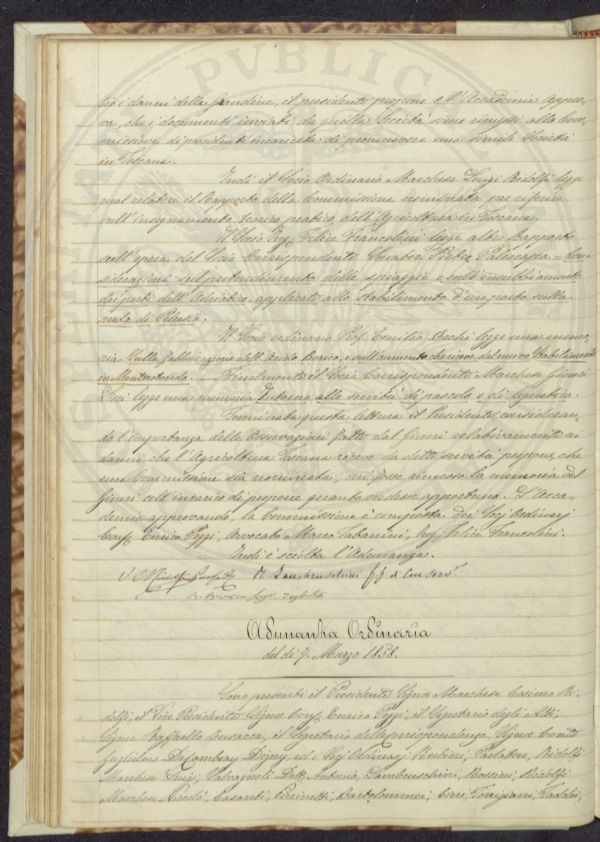 tro i danni della grandine, il presidente propone e l'Accademia appro-
va, che i documenti inviati da quella Società sieno rimessi alla Com-
missione di già esistente incaricata di promuovere una simile Società
in Toscana.
Indi il Socio Ordinario Marchese Luigi Ridolfi legge
qual relatore il Rapporto della Commissione nominata per riferire
sull'insegnamento teorico pratico dell'Agricoltura in Toscana.
Il Socio Ing. Felice Francolini legge altro Rapporto
sull'opera del Socio Corrispondente Senatore Pietro Paleocapa = Con-
siderazioni sul protendimento delle spiaggie e sull'insabbiamento
dei porti dell'Adriatico applicate allo Stabilimento d'un porto sulla
rada di Pelusio.
Il Socio ordinario Prof. Emilio Bechi legge una memo-
ria Sulla fabbricazione dell'Acido Borico, e sull'aumento che riceve dal nuovo Stabilimento
in Monterotondo. Finalmente il Socio Corrispondente Marchese Giunori
Lisci legge una memoria Intorno alle servitù di pascolo e di legnatico.
Terminata questa lettura il Presidente consideran-
do l'importanza delle Osservazioni fatte dal relativamente ai
danni che l'Agricoltura Toscana riceve da dette servitù propone che
una Commissione sia nominata, cui fosse rimessa la memoria del
coll'incarico di proporre quanto credesse opportuno. L'Acca-
demia approvando, la Commissione è composta dei Socj Ordinarj
Enrico Poggi, Avvocato Marco Tabarrini, Ing. Felice Francolini.
Indi è sciolta l'Adunanza.
R. Lambruschini f.f. di
Segr. degli Atti
Adunanza Ordinaria
del dì 7. Marzo 1858.
Sono presenti il Presidente Signor Marchese Cosimo Ri-
dolfi, il Vice Presidente Signor Enrico Poggi, il Segretario degli Atti,
Signor Raffaello Busacca, il Segretario delle corrispondenze Signor Conte
Guglielmo De Cambray Digny, ed i Socj Ordinarj Rubieri, Parlatore, Ridolfi
Marchese Luigi, Salvagnoli Dott. Antonio, Lambruschini, Rossini, Ridolfi
Marchese Niccolò, Casanti, Bartolommei, Corsi, Torrigiani, Taddei,